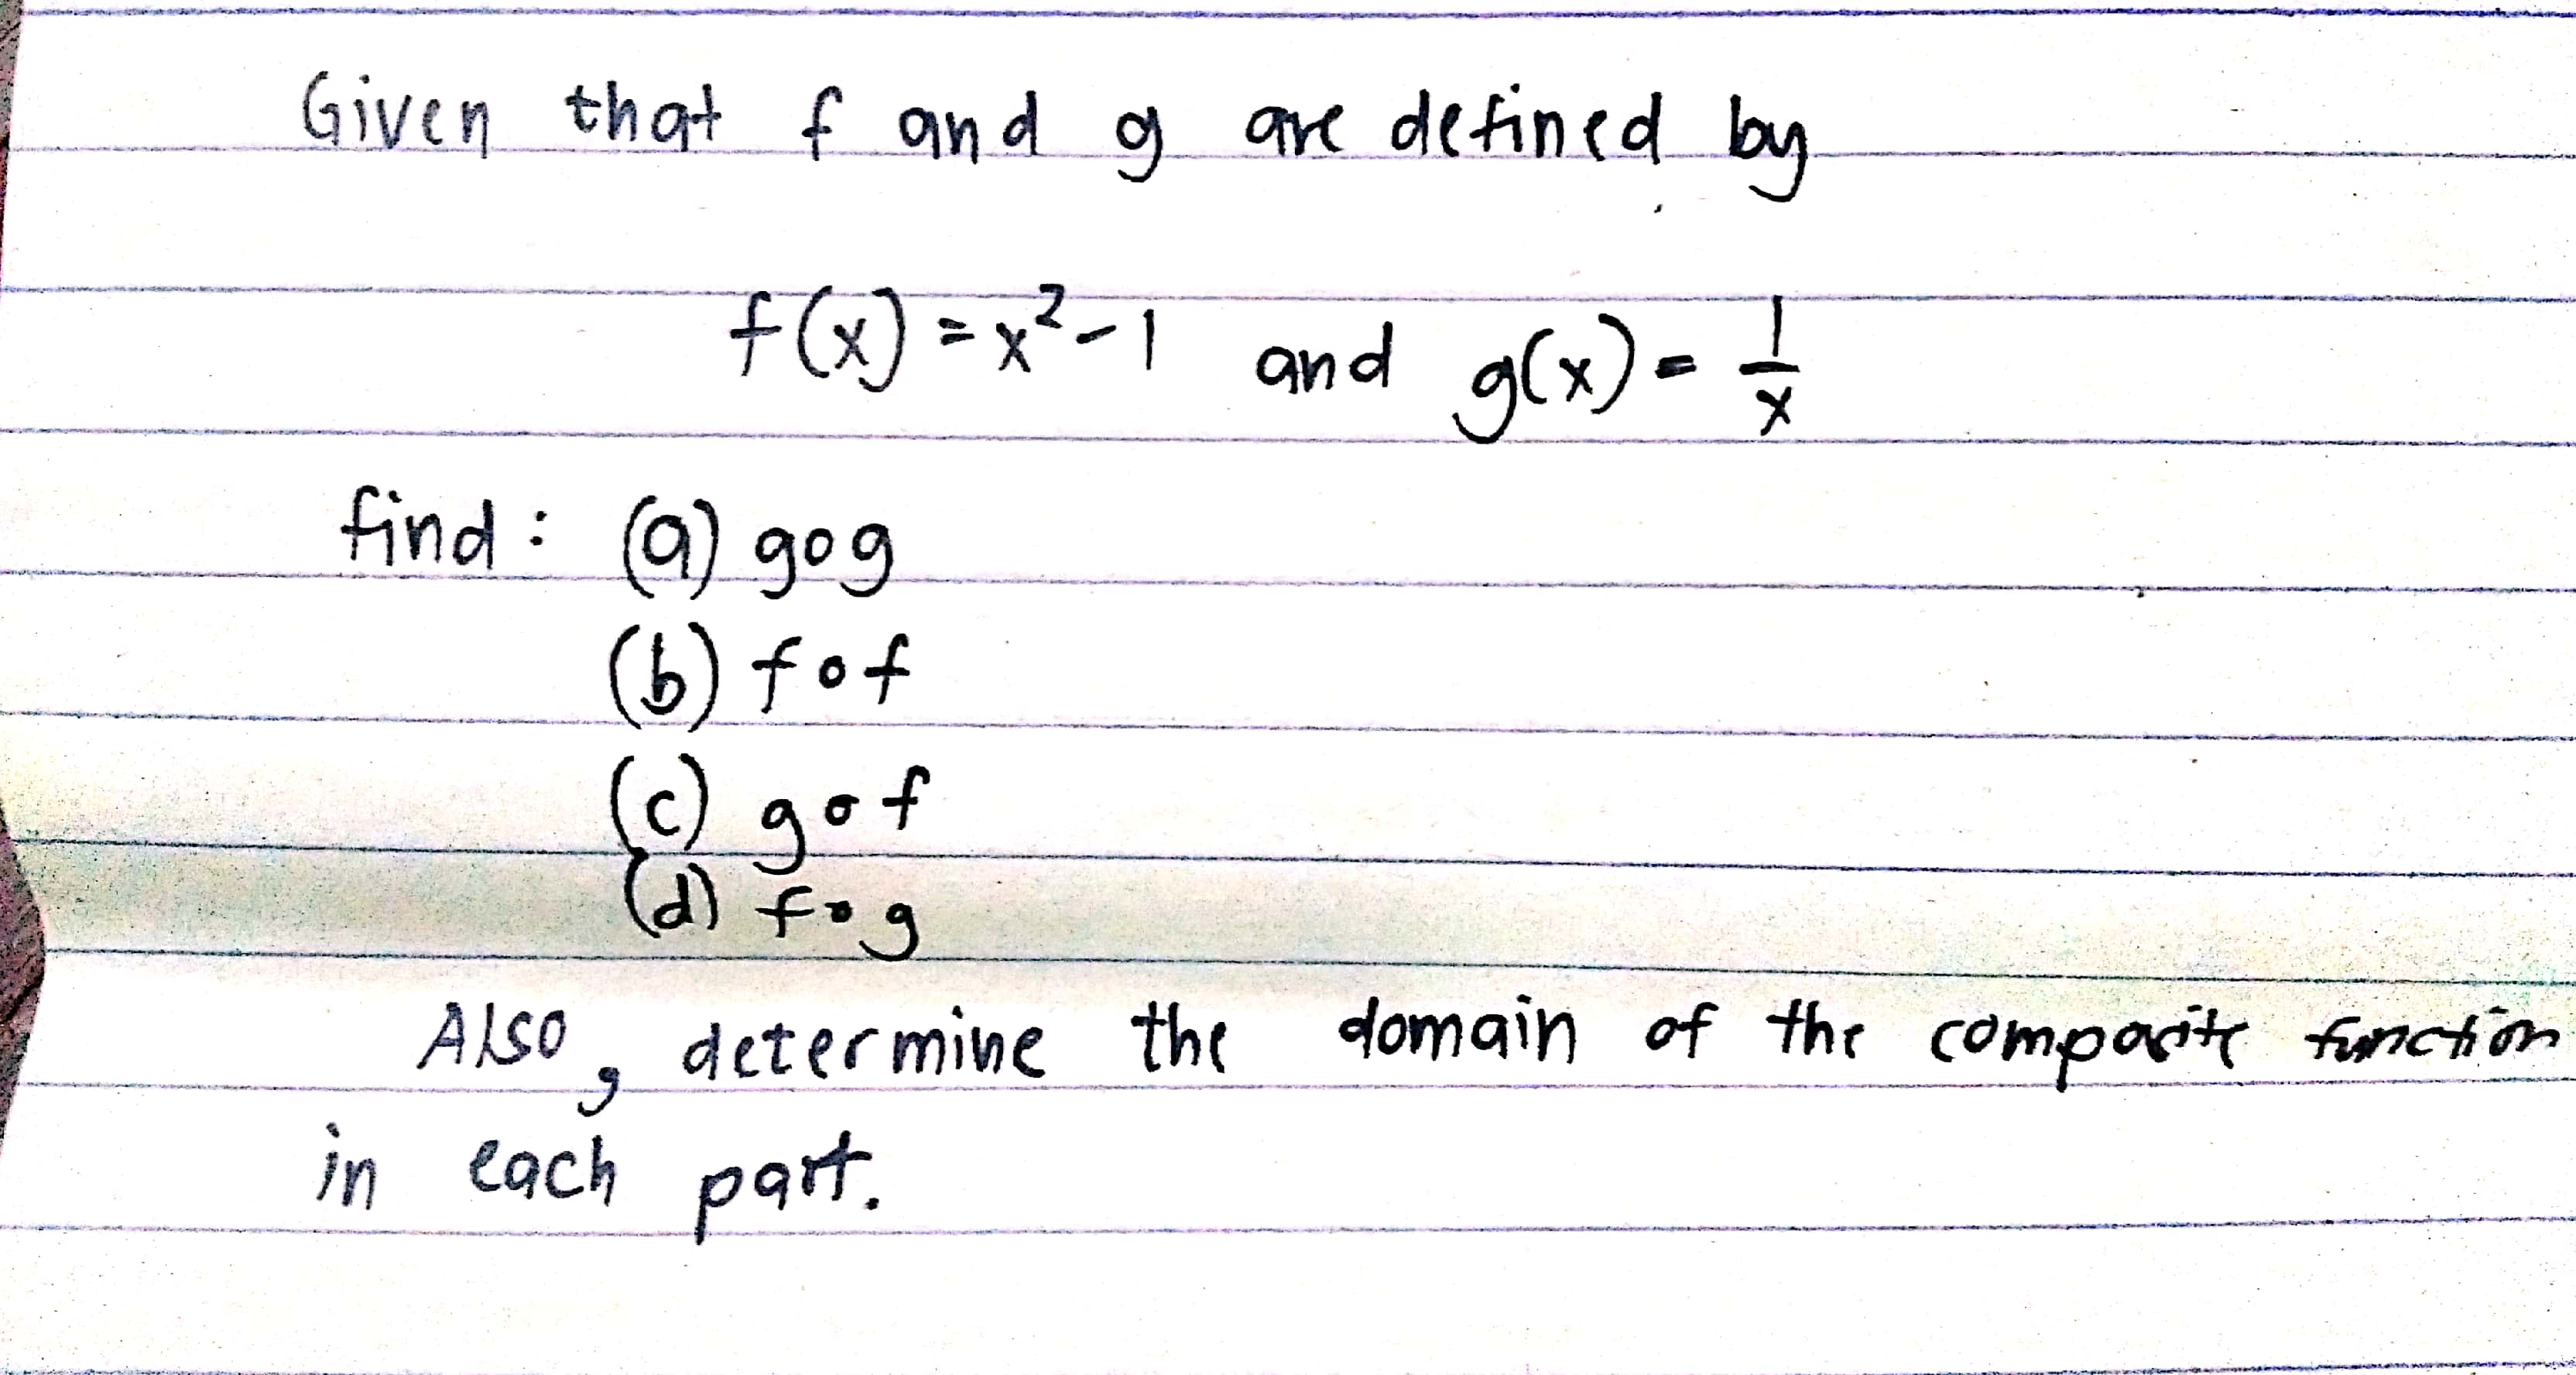 Given that f and g are defined by
f(x) = x² - 1 and g(x) = 1/x
find : (a) gog
(b) fof
(c) gof
(d) fog
Also, determine the domain of the composite function
in each part.